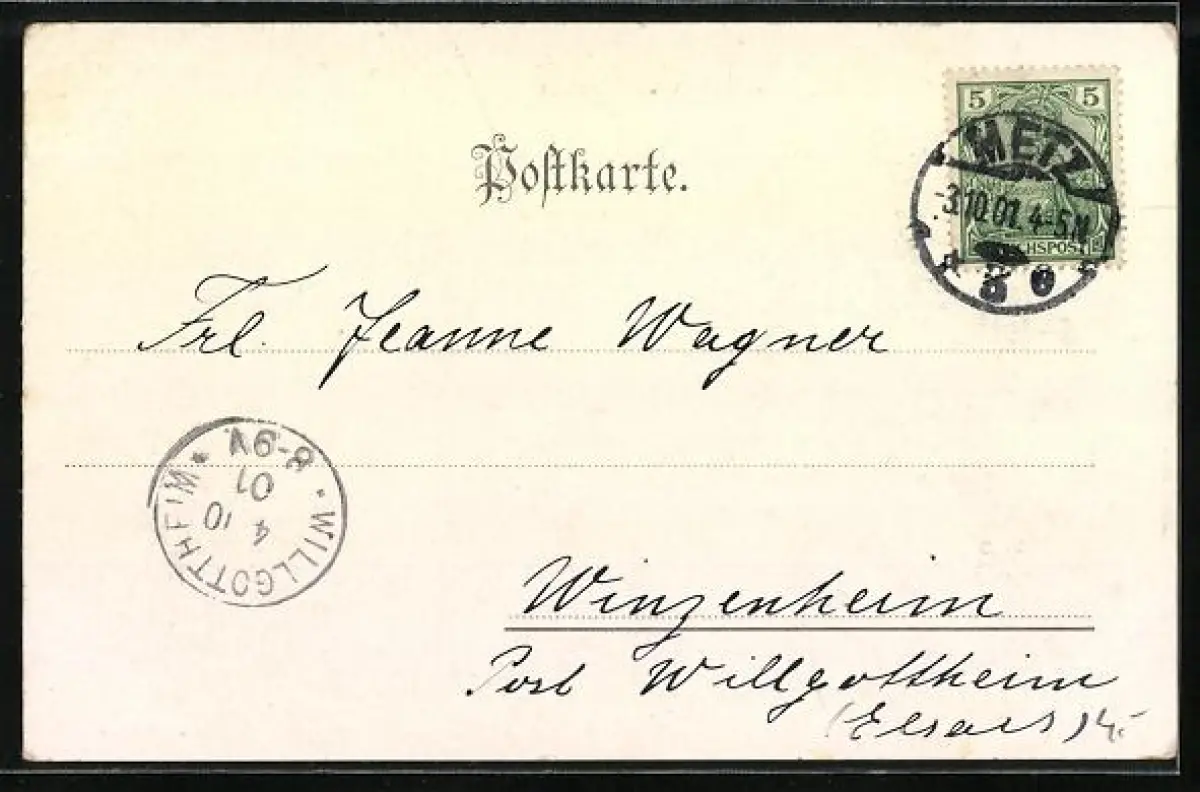 Postkarte.
5 5
METZ
-3.10.01. 4-5 N
REICHSPOST
Frl. Jeanne Wagner
WILLGOTTHEIM
4
10
01
8-9V.
Winzenheim
Post Willgottheim
(Elsass)